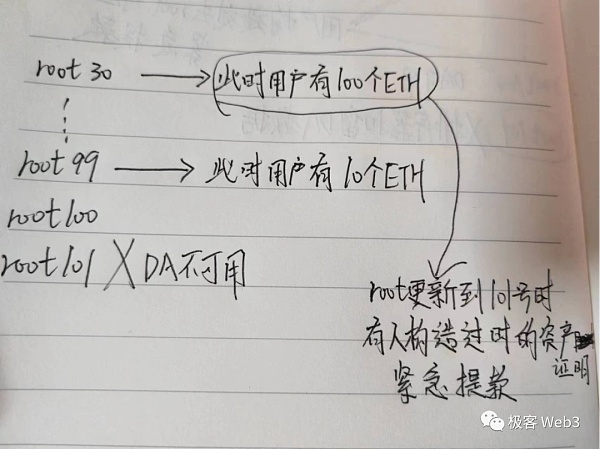 root 30 → 此时用户有100个ETH
root 99 → 此时用户有10个ETH
root100
root101 X DA不可用
root更新到101号时
有人构造过时的资产
证明
紧急提款
极客Web3